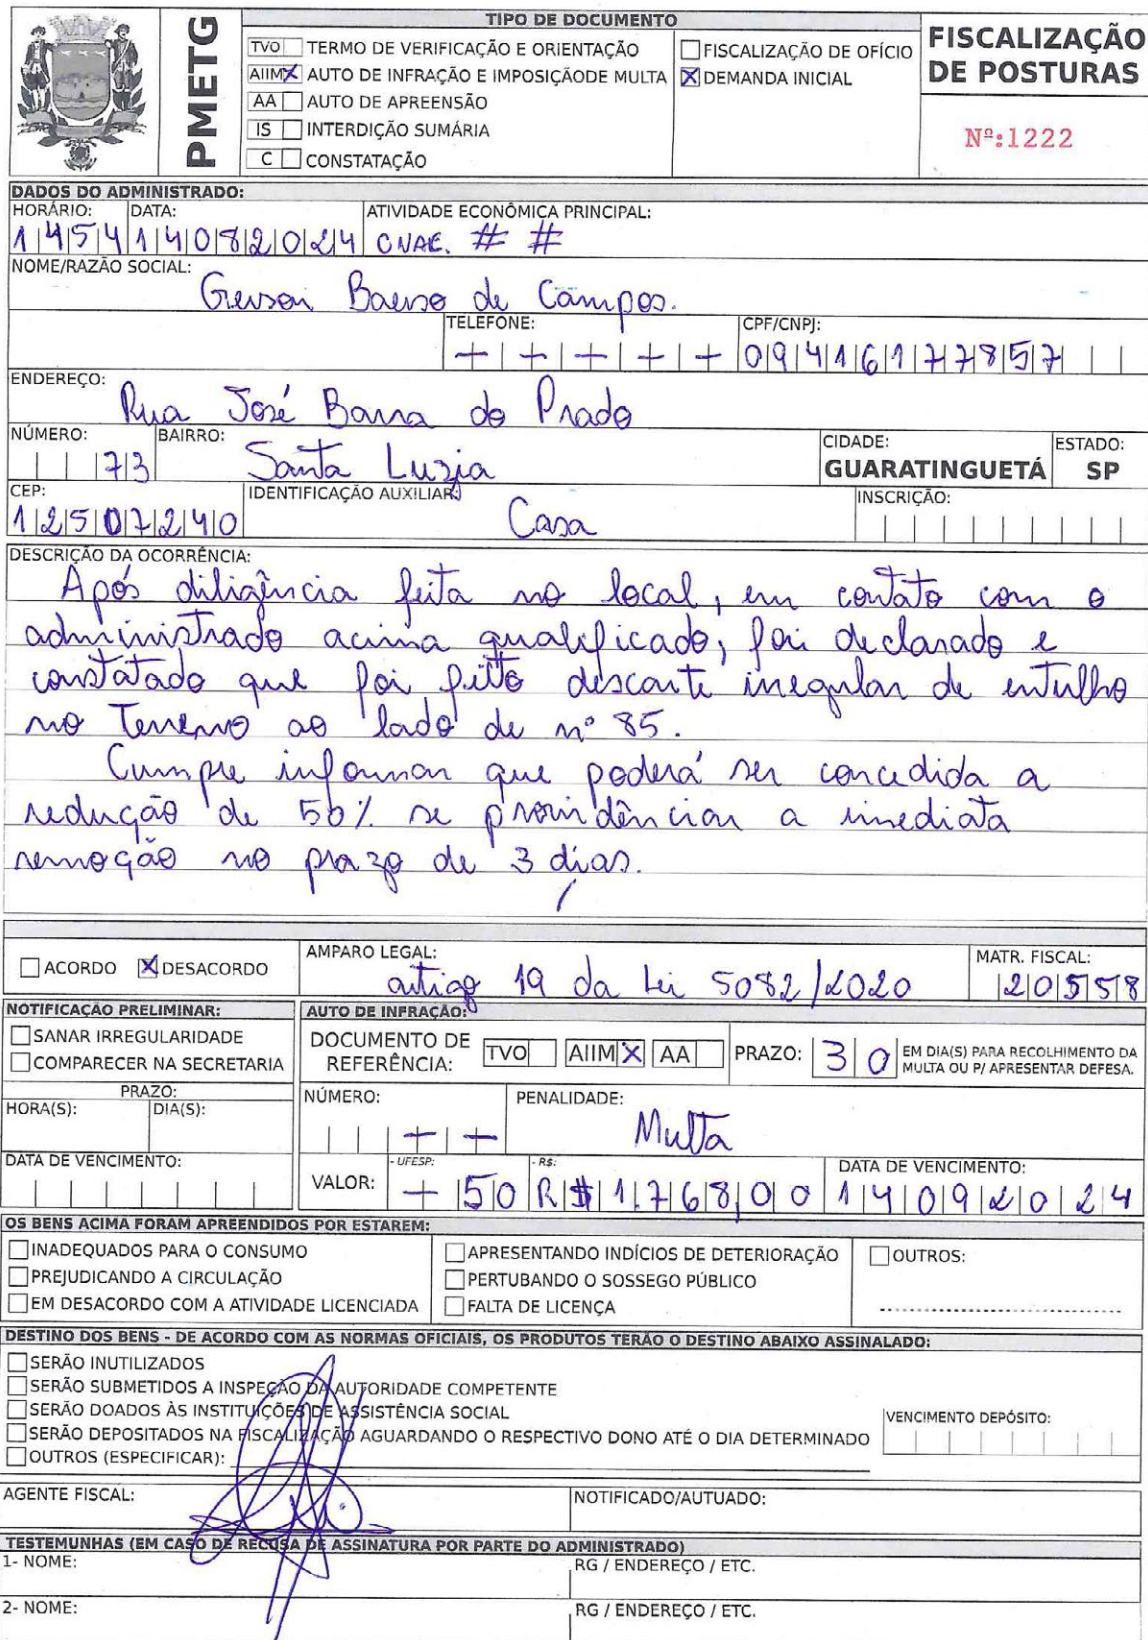 PMETG
TIPO DE DOCUMENTO
TVO TERMO DE VERIFICAÇÃO E ORIENTAÇÃO
AIIM X AUTO DE INFRAÇÃO E IMPOSIÇÃODE MULTA
AA AUTO DE APREENSÃO
IS INTERDIÇÃO SUMÁRIA
C CONSTATAÇÃO
FISCALIZAÇÃO DE OFÍCIO
X DEMANDA INICIAL
FISCALIZAÇÃO
DE POSTURAS
Nº:1222
DADOS DO ADMINISTRADO:
HORÁRIO: DATA: ATIVIDADE ECONÔMICA PRINCIPAL:
1454 14082024 CNAE. # #
NOME/RAZÃO SOCIAL:
de Campos.
TELEFONE: CPF/CNPJ:
09416177857
ENDEREÇO:
Rua José Barra do Prado
NÚMERO: BAIRRO: CIDADE: ESTADO:
73 Santa Luzia GUARATINGUETÁ SP
CEP: IDENTIFICAÇÃO AUXILIAR: INSCRIÇÃO:
12507240 Casa
DESCRIÇÃO DA OCORRÊNCIA:
Após diligência feita no local, em contato com o
administrado acima qualificado, foi declarado e
constatado que foi feito descarte irregular de entulho
no Terreno ao lado de nº 85.
Cumpre informar que poderá ser concedida a
redução de 50% se providenciar a imediata
remoção no prazo de 3 dias.
ACORDO X DESACORDO
AMPARO LEGAL:
artigo 19 da Lei 5082/2020
MATR. FISCAL:
20558
NOTIFICAÇÃO PRELIMINAR:
SANAR IRREGULARIDADE
COMPARECER NA SECRETARIA
PRAZO:
HORA(S): DIA(S):
DATA DE VENCIMENTO:
AUTO DE INFRAÇÃO:
DOCUMENTO DE
REFERÊNCIA: TVO AIIM X AA PRAZO: 30 EM DIA(S) PARA RECOLHIMENTO DA
MULTA OU P/ APRESENTAR DEFESA.
NÚMERO: PENALIDADE:
Multa
VALOR: - UFESP: - R$: DATA DE VENCIMENTO:
50 R$ 1.768,00 14092024
OS BENS ACIMA FORAM APREENDIDOS POR ESTAREM:
INADEQUADOS PARA O CONSUMO
PREJUDICANDO A CIRCULAÇÃO
EM DESACORDO COM A ATIVIDADE LICENCIADA
APRESENTANDO INDÍCIOS DE DETERIORAÇÃO
PERTUBANDO O SOSSEGO PÚBLICO
FALTA DE LICENÇA
OUTROS:
DESTINO DOS BENS - DE ACORDO COM AS NORMAS OFICIAIS, OS PRODUTOS TERÃO O DESTINO ABAIXO ASSINALADO:
SERÃO INUTILIZADOS
SERÃO SUBMETIDOS A INSPEÇÃO DA AUTORIDADE COMPETENTE
SERÃO DOADOS ÀS INSTITUIÇÕES DE ASSISTÊNCIA SOCIAL
SERÃO DEPOSITADOS NA FISCALIZAÇÃO AGUARDANDO O RESPECTIVO DONO ATÉ O DIA DETERMINADO
OUTROS (ESPECIFICAR):
VENCIMENTO DEPÓSITO:
AGENTE FISCAL: NOTIFICADO/AUTUADO:
TESTEMUNHAS (EM CASO DE RECUSA DE ASSINATURA POR PARTE DO ADMINISTRADO)
1- NOME: RG / ENDEREÇO / ETC.
2- NOME: RG / ENDEREÇO / ETC.